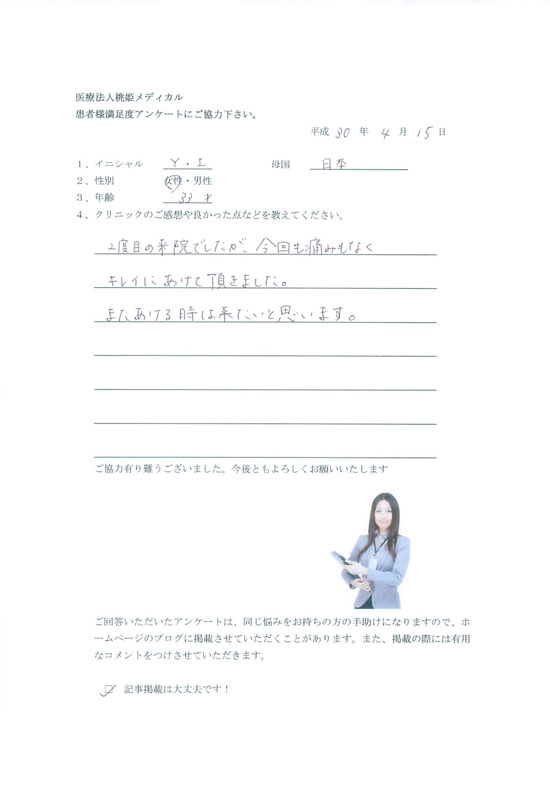 医療法人桃姫メディカル
患者様満足度アンケートにご協力下さい。
平成 30 年 4 月 15 日
1、イニシャル Y・I 母国 日本
2、性別 女性・男性
3、年齢 33才
4、クリニックのご感想や良かった点などを教えてください。
2度目の来院でしたが、今回も痛みもなく
キレイにあけて頂きました。
またあける時は来たいと思います。
ご協力有り難うございました。今後ともよろしくお願いいたします
ご回答いただいたアンケートは、同じ悩みをお持ちの方の手助けになりますので、ホ
ームページのブログに掲載させていただくことがあります。また、掲載の際には有用
なコメントをつけさせていただきます。
記事掲載は大丈夫です！